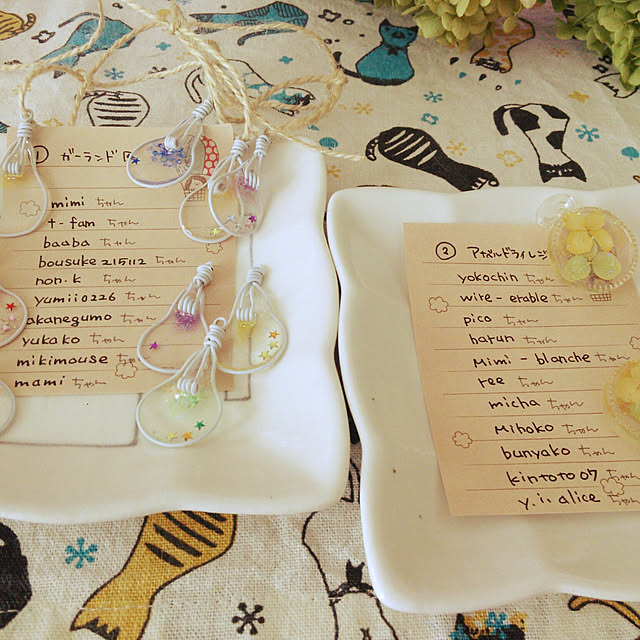 ① ガーランド
mimi ちゃん
t-fam ちゃん
baaba ちゃん
bousuke215112 ちゃん
non.k ちゃん
yumii0226 ちゃん
akanegumo ちゃん
yukako ちゃん
mikimouse ちゃ
mami ちゃん
② アナベルドライレジ
yokochin ちゃん
wire-erable ちゃん
pico ちゃん
harun ちゃん
Mimi-blanche ちゃん
ree ちゃん
micha ちゃん
Mihoko ちゃん
bunyako ちゃん
kintoto07 ちゃん
y.is alice ちゃん